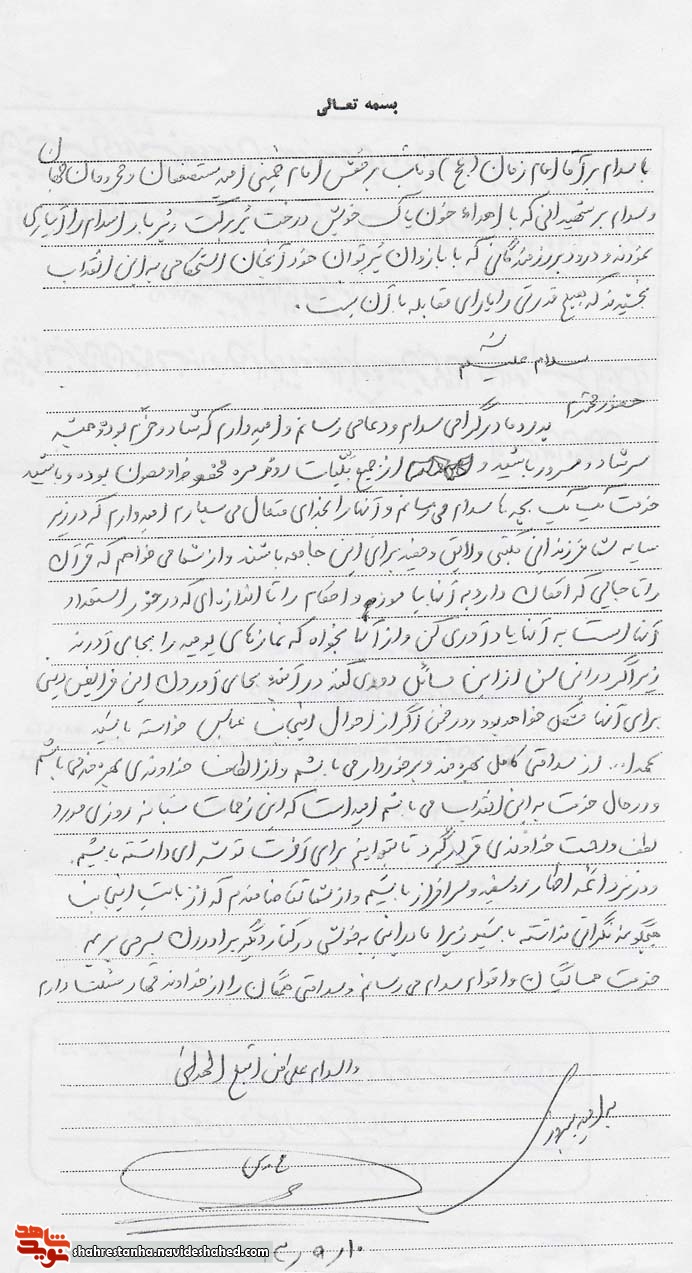 بسمه تعالی
با سلام بر آقا امام زمان (عج) و نائب برحقش امام خمینی امید مستضعفان و محرومان جهان
و سلام بر شهیدانی که با اهداء خون پاک خویش درخت پُربرکت و پُربار اسلام را آبیاری
نمودند و درود بر رزمندگانی که با بازوان پُرتوان خود آنچنان استحکامی به این انقلاب
بخشیدند که هیچ قدرتی را یارای مقابله با آن نیست.
سلام علیکم
حضور محترم پدر و مادر گرامی سلام و دعا می رسانم و امیدوارم که شاد و خرّم بوده و همیشه
سرشاد و مسرور باشید و از جمیع بلّیات روزمره محفوظ و مصون بوده و باشید
خدمت یک یک بچه ها سلام می رسانم و آنها را بخدای متعال می سپارم امیدوارم که در زیر
سایه شما فرزندانی مکتبی و لایق و مفید برای این جامعه باشند و از شما می خواهم که قرآن
را تا جایی که امکان دارد به آنها بیاموزم و احکام را تا اندازه ای که در خور استعداد
آنها است به آنها یادآوری کن و از آنها بخواه که نمازهای یومیه را بجای آورند
زیرا اگر در این سن از این مسائل دوری کنند در آینده بجای آوردن این فرایض دینی
برای آنها مشکل خواهد بود و در ضمن اگر از احوال اینجانب عباس خواسته باشید
بحمدا... از سلامتی کامل بهره مند و برخوردار می باشم و از الطاف خداوندی بهره مند می باشم
و در حال خدمت به این انقلاب می باشم امید است که این زحمات شبانه روزی مورد
لطف و رحمت خداوندی قرار گیرد تا بتوانیم برای آخرت توشه ای داشته باشیم.
و در نزد ائمه اطهار روسفید و سرافراز باشیم و از شما تقاضامندم که از بابت اینجانب
هیچگونه نگرانی نداشته باشید زیرا ما در اینجا به خوشی در کنار دیگر برادران بسر می بریم
خدمت همسایگان و اقوام سلام می رسانم و سلامتی همگان را از خداوند قهار مسئلت دارم
والسلام علی من اتبع الهدی
به امید بهروزی
۱۰ر۹ر
شاهد
نوید
shahrestanha.navideshahed.com